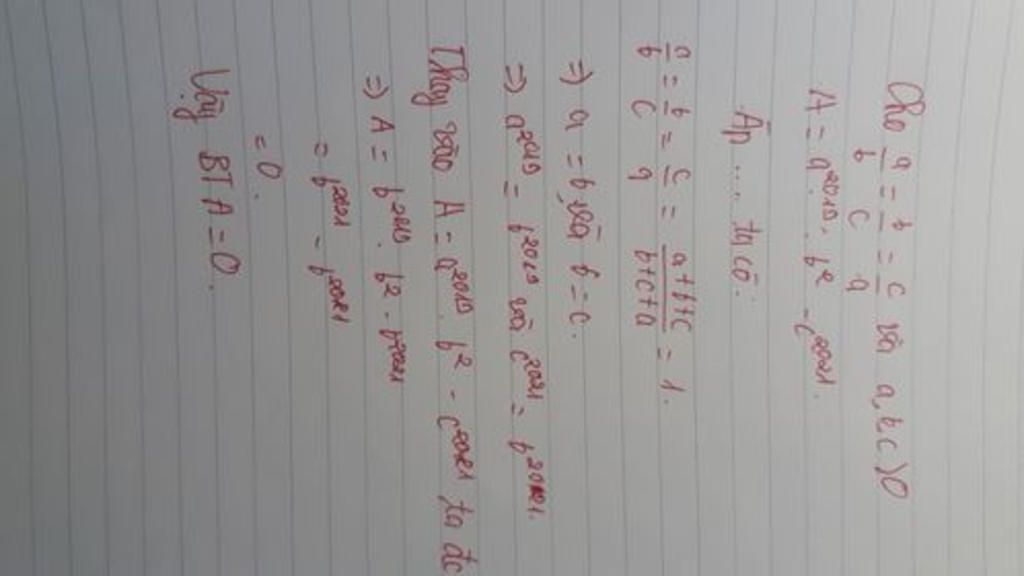 Cho a/b = b/c = c/a và a,b,c > 0
A = a^2019 . b^2 - c^2021.
Áp .... ta có:
a/b = b/c = c/a = (a+b+c)/(b+c+a) = 1.
=> a = b và b = c.
=> a^2019 = b^2019 và c^2021 = b^2021.
Thay vào A = a^2019 . b^2 - c^2021 ta đc
=> A = b^2019 . b^2 - b^2021
= b^2021 - b^2021
= 0.
Vậy BTA = 0.